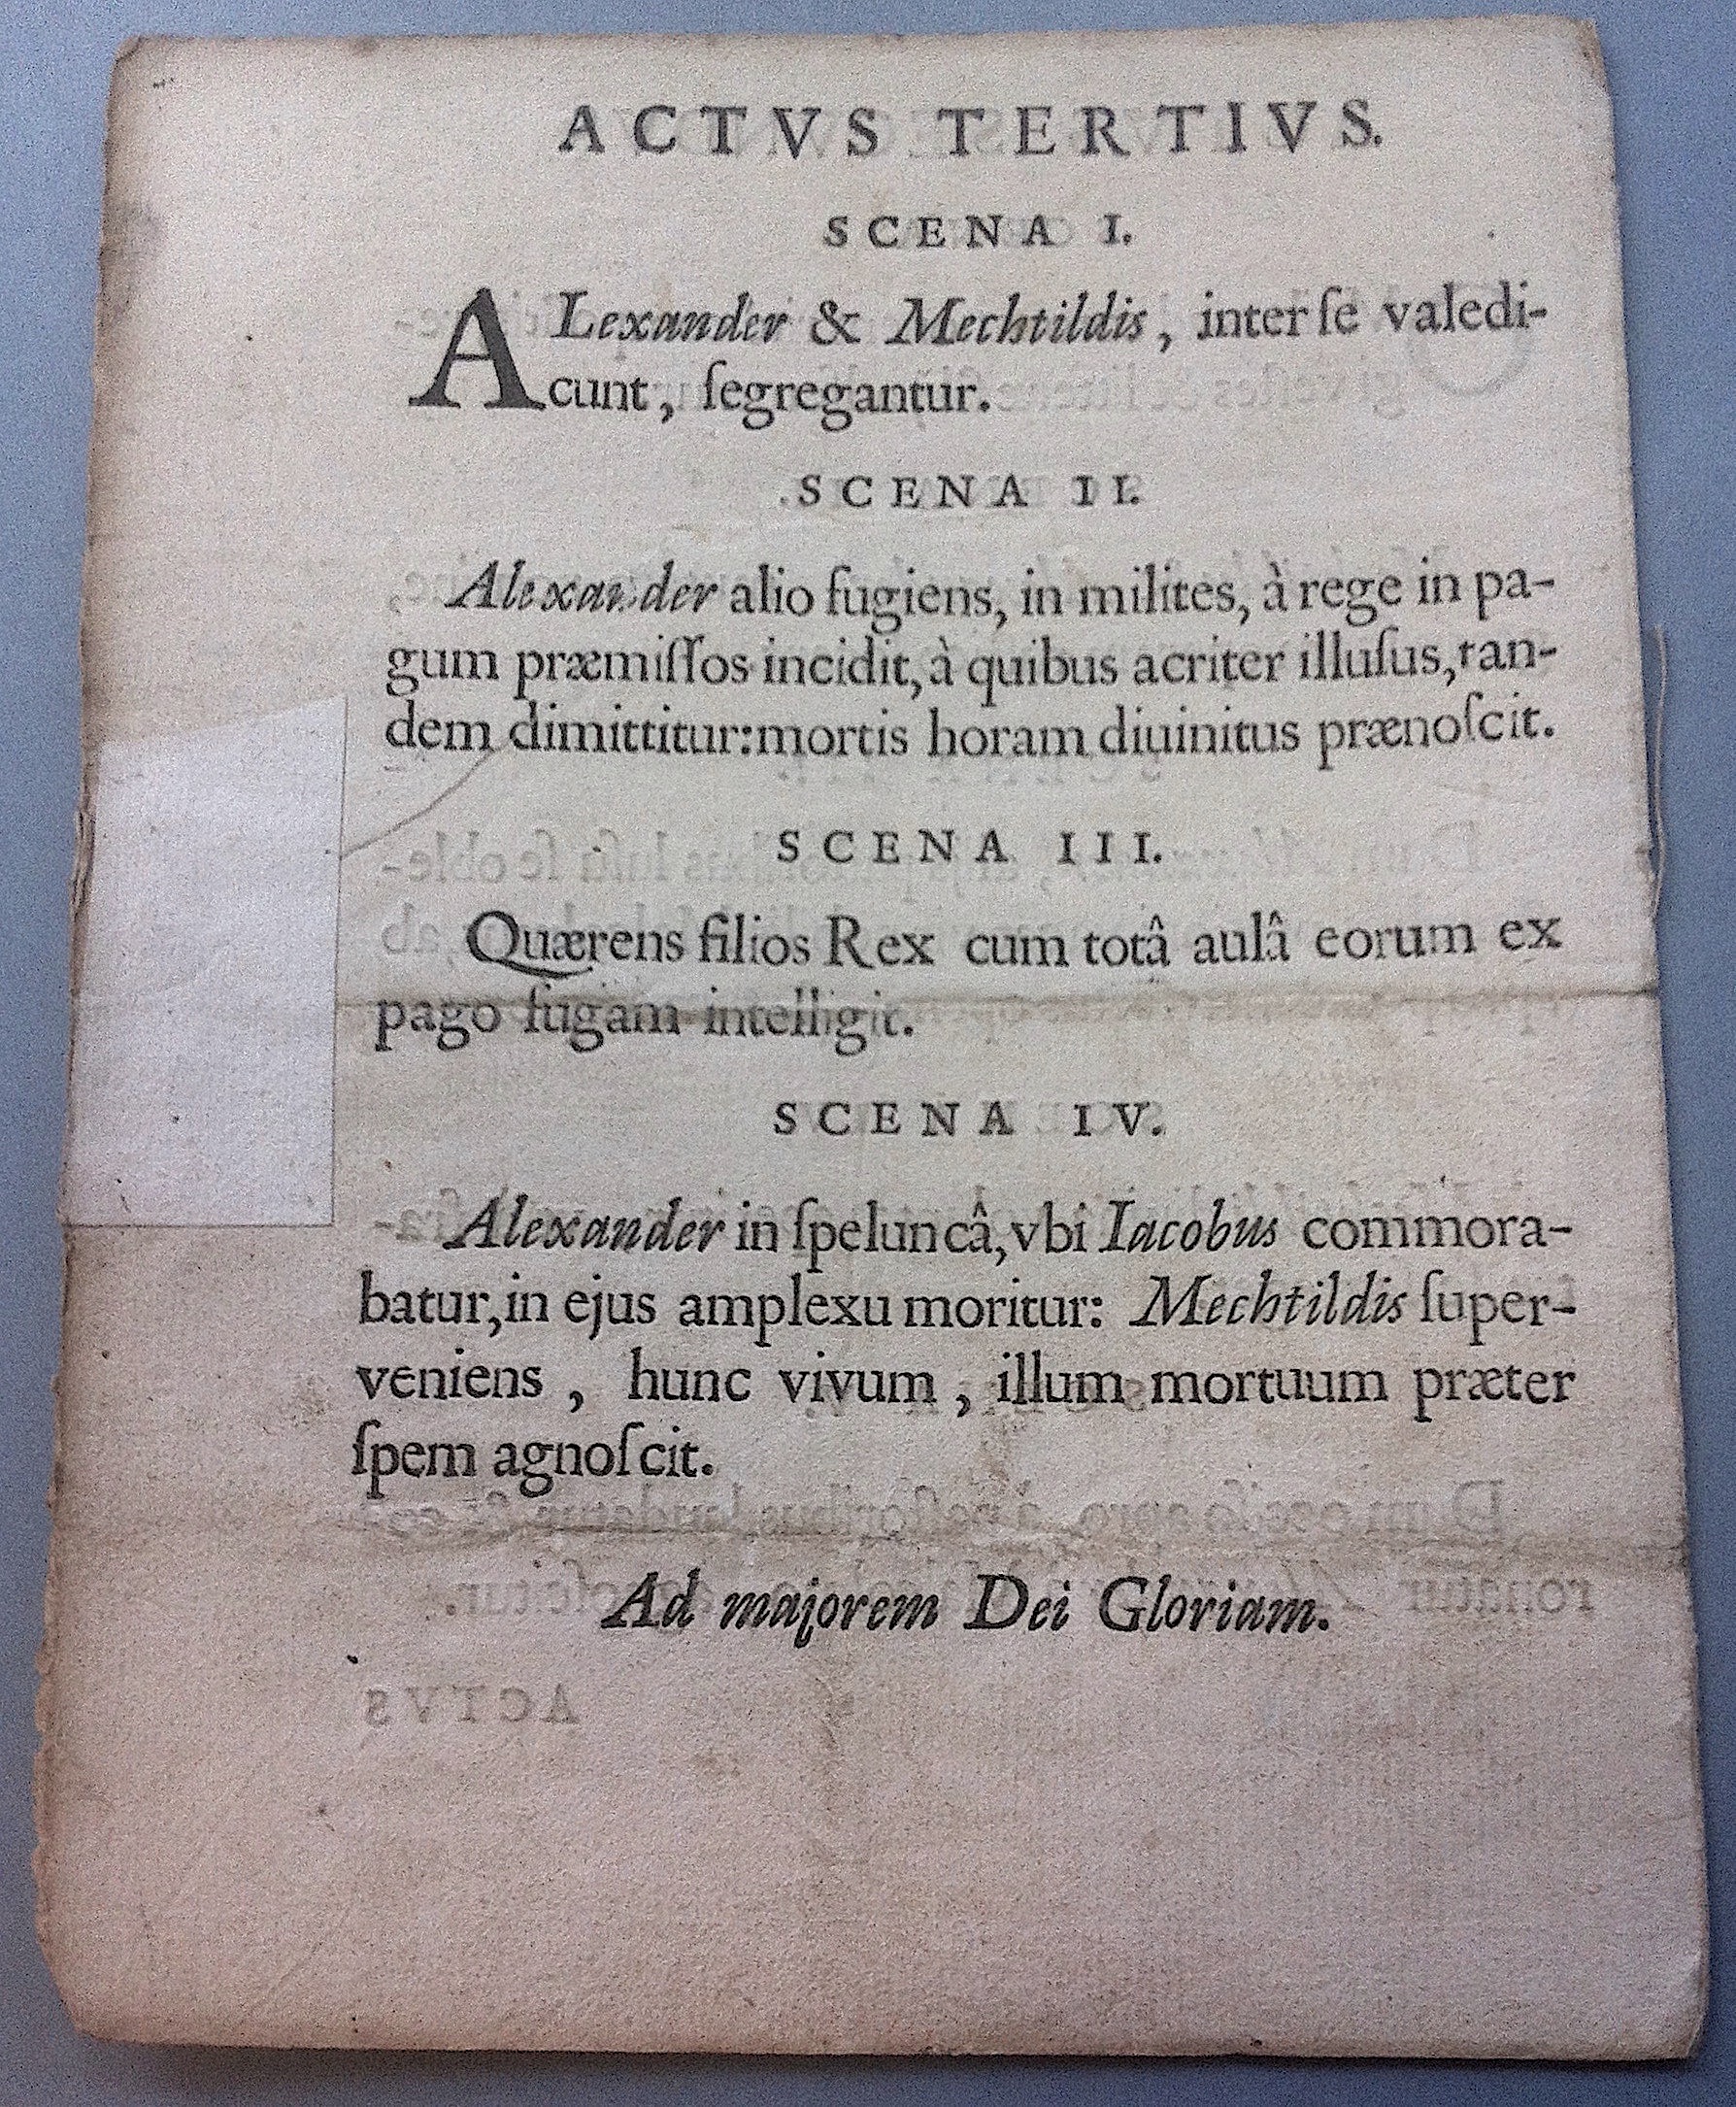 ACTVS TERTIVS.
SCENA I.
ALexander & Mechtildis, inter ſe valedi-
cunt, ſegregantur.
SCENA II.
Alexander alio fugiens, in milites, à rege in pa-
gum præmiſſos incidit, à quibus acriter illuſus, tan-
dem dimittitur: mortis horam diuinitus prænoſcit.
SCENA III.
Quærens filios Rex cum totâ aulâ eorum ex
pago fugam intelligit.
SCENA IV.
Alexander in ſpeluncâ, vbi Iacobus commora-
batur, in ejus amplexu moritur: Mechtildis ſuper-
veniens, hunc vivum, illum mortuum præter
ſpem agnoſcit.
Ad majorem Dei Gloriam.